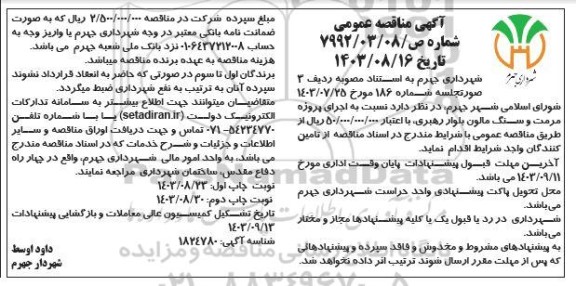 آگهی مناقصه عمومی
شماره ص/۷۹۹۲/۰۳/۰۸
تاریخ ۱۴۰۳/۰۸/۱۶
شهرداری جهرم
شهرداری جهرم به استناد مصوبه ردیف ۳
صورتجلسه شماره ۱۸۶ مورخ ۱۴۰۳/۰۷/۲۵
شورای اسلامی شهر جهرم، در نظر دارد نسبت به اجرای پروژه
مرمت و سنگ مالون بلوار رهبری، با اعتبار ۵۰/۰۰۰/۰۰۰/۰۰۰ ریال از
طریق مناقصه عمومی با شرایط مندرج در اسناد مناقصه از تامین
کنندگان واجد شرایط اقدام نماید.
آخرین مهلت قبول پیشنهادات پایان وقت اداری مورخ
۱۴۰۳/۰۹/۱۱ می باشد.
محل تحویل پاکت پیشنهادی واحد حراست شهرداری جهرم
می‌باشد.
شهرداری در رد یا قبول یک یا کلیه پیشنهادها مجاز و مختار
می‌باشد.
به پیشنهادهای مشروط و مخدوش و فاقد سپرده و پیشنهادهائی
که پس از مهلت مقرر ارسال شوند ترتیب اثر داده نخواهد شد.
مبلغ سپرده شرکت در مناقصه ۲/۵۰۰/۰۰۰/۰۰۰ ریال که به صورت
ضمانت نامه بانکی معتبر در وجه شهرداری جهرم یا واریز وجه به
حساب ۰۱۰۶۴۳۷۲۱۲۰۰۸ نزد بانک ملی شعبه جهرم می باشد.
هزینه مناقصه به عهده برنده مناقصه میباشد.
برندگان اول تا سوم در صورتی که حاضر به انعقاد قرارداد نشوند
سپرده آنان به ترتیب به نفع شهرداری ضبط میگردد.
متقاضیان میتوانند جهت اطلاع بیشتر به سامانه تدارکات
الکترونیک دولت (setadiran.ir) یا با شماره تلفن
۰۷۱-۵۴۲۳۴۷۷۰ تماس و جهت دریافت اوراق مناقصه و سایر
اطلاعات و جزئیات و شرح خدمات که در اسناد مناقصه مندرج
می باشد، به واحد امور مالی شهرداری جهرم، واقع در چهار راه
دفاع مقدس، ساختمان شهرداری مراجعه نمایند.
نوبت چاپ اول: ۱۴۰۳/۰۸/۲۳
نوبت چاپ دوم: ۱۴۰۳/۰۸/۳۰
تاریخ تشکیل کمیسیون عالی معاملات و بازگشایی پیشنهادات
۱۴۰۳/۰۹/۱۳
شناسه آگهی: ۱۸۲۴۷۸۰
داود اوسط
شهردار جهرم